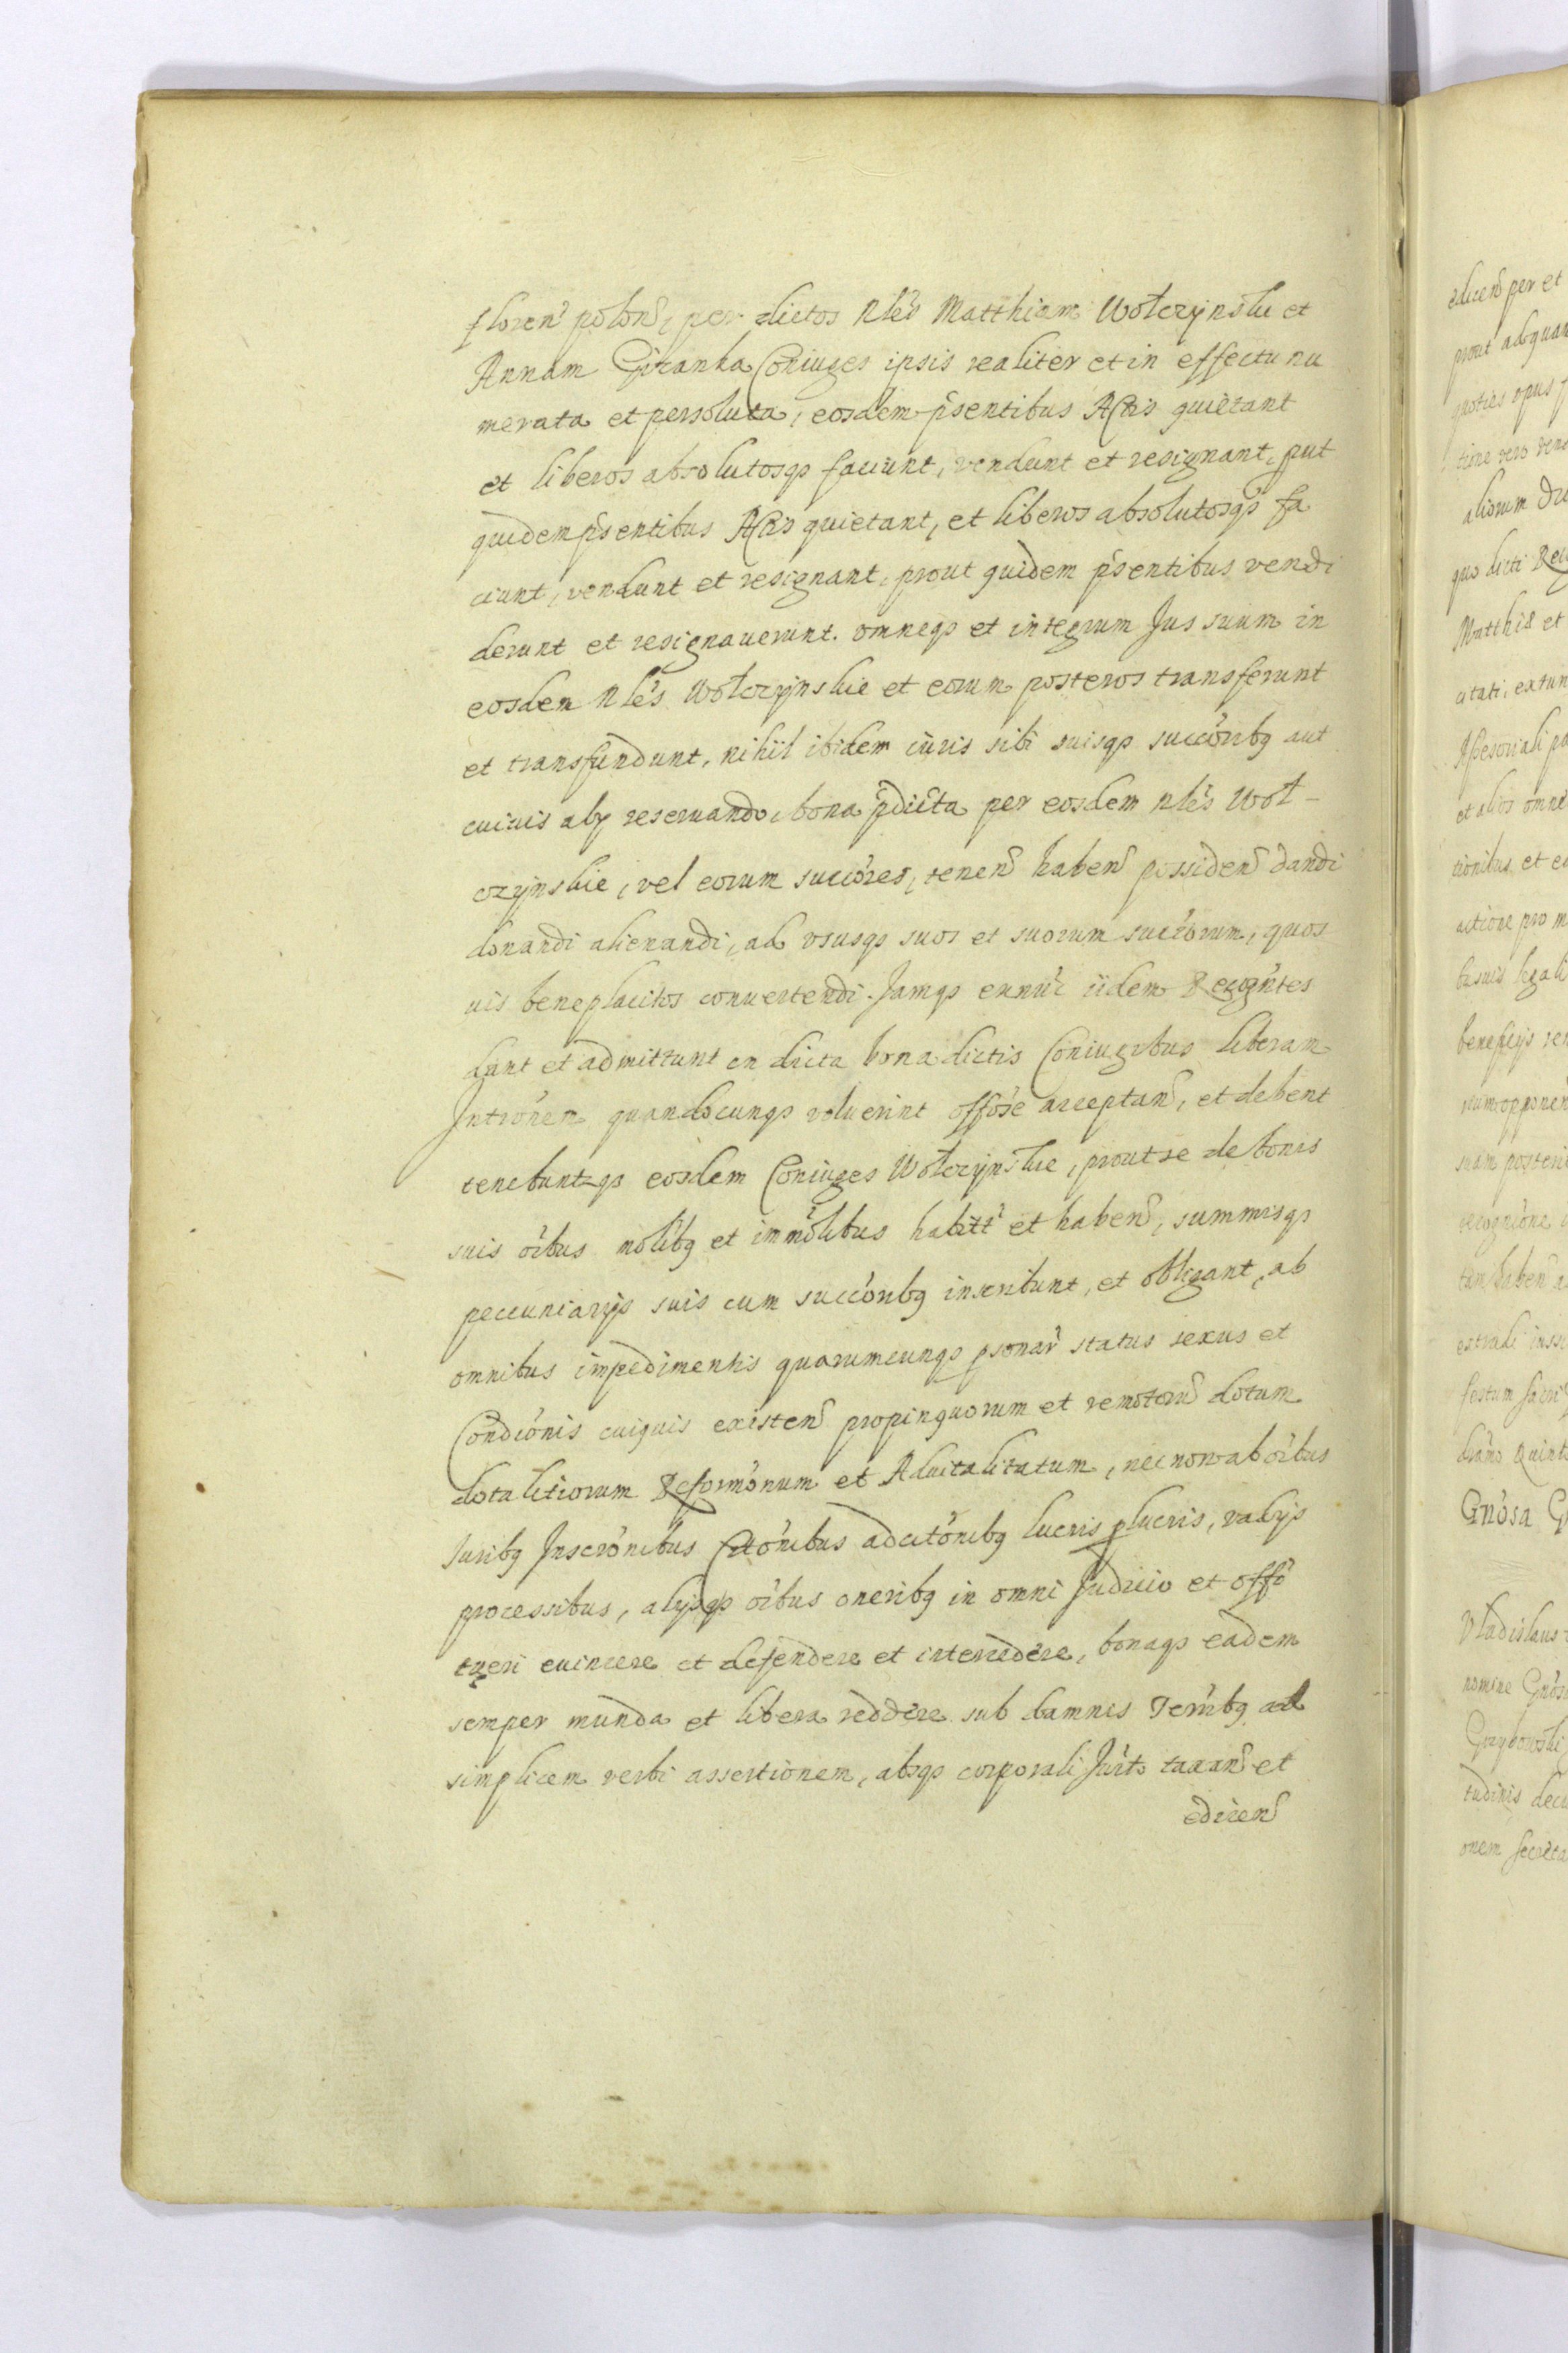 floren polon, per dictos Nles Matthiam Wołczynskie et
Annam Gizanka Coniuges ipsis realiter et in effectu nu
merata et persoluta, eosdem psentibus Actis quietant
et liberos absolutosqs faciunt, vendunt et resignant, put
quidem psentibus Actis quietant, et liberos absolutosqs fa
ciunt, vendunt et resignant, prout quidem psentibus vendi
derunt et resignauerunt. omneqs et integrum Jus suum in
eosdem Nles Wołczynskie et eorum posteros transferunt
et transfundunt, nihil ibidem iuris sibi suisqs succoribg aut
cuiuis alÿ reseruando, bona pdicta per eosdem nles Woł-
czynskie, vel eorum succores, tenen haben possiden dandi
donandi alienandi, ad vsusqs suos et suorum succorum, quos
uis beneplacitos conuertendi. Jamqs exnuc iidem Recogntes
dant et admittunt in dicta bona dictis Coniugibus liberam
Intronem quandocunqs voluerint offose acceptan, et debent
tenebuntqs eosdem Coniuges Wołczynskie, prout se de bonis
suis oibus nolibg et immolibus habitt et haben, summisqs
peccuniarÿs suis cum succoribg inscribunt, et obligant, ab
omnibus impedimentis quarumcunqs psonar status sexus et
Condionis cuiquis existen propinquorum et remotoru dotum
dotalitiorum Reformonum et Aduitalitatum, necnon ab oibus
Juribg Inscronibus Citonibus adcitonibg lucris plucris, vadÿs
processibus, alÿsqs oibus oneribg in omni Judicio et offo
tueri euincere et defendere et intercedere, bonaqs eadem
semper munda et libera reddere sub damnis Terribg ad
simplicem verbi assertionem, absqs corporali Jurto taxan et
edicen
edicen per et
prout ab quar
quoties opus
tione vero
aliorum
quo dicti
Matthis et
citati, extun
Assesoriali
et alios omne
tionibus et
actione pro m
legali
benefcÿs
opponen
suam
recognione
haben
festum Sacri
Quint
Gnosa
Vladislaus
nomine Gnos
Grzybowski
tudinis
onem